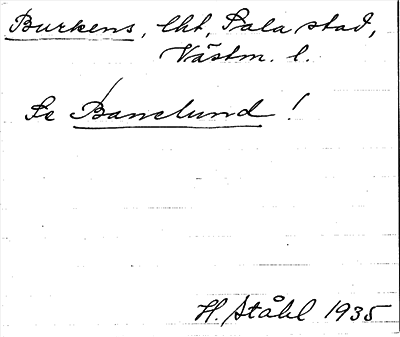 Burkens, lht, Sala stad,
Västm. l.
Se Banelund !
H. Ståhl 1935